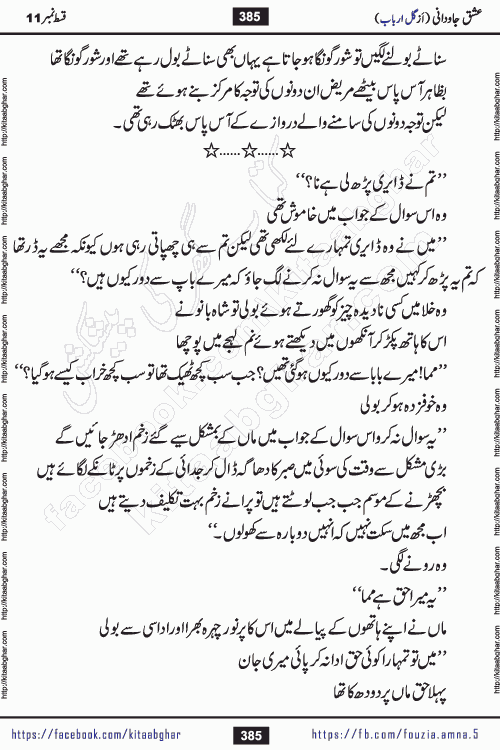 عشق جاودانی (از گل ارباب) 385 قسط نمبر 11
سناٹے بولنے لگیں تو شور گونگا ہو جاتا ہے یہاں بھی سناٹے بول رہے تھے اور شور گونگا تھا
بظاہر آس پاس بیٹھے مریض ان دونوں کی توجہ کا مرکز بنے ہوئے تھے
لیکن توجہ دونوں کی سامنے والے دروازے کے آس پاس بھٹک رہی تھی۔
☆......☆......☆
’’تم نے ڈایری پڑھ لی ہے نا؟‘‘
وہ اس سوال کے جواب میں خاموش تھی
’’میں نے وہ ڈایری تمہارے لئے لکھی تھی لیکن تم سے ہی چھپاتی رہی ہوں کیونکہ مجھے یہ ڈر تھا
کہ تم یہ پڑھ کر کہیں مجھ سے یہ سوال نہ کرنے لگ جاؤ کہ میرے باپ سے دور کیوں ہیں؟‘‘
وہ خلا میں کسی نادیدہ چیز کو گھورتے ہوئے بولی تو شاہ بانو نے
اس کا ہاتھ پکڑ کر آنکھوں میں دیکھتے ہوئے نم لہجے میں پوچھا
’’مما! میرے بابا سے دور کیوں ہو گئی تھیں؟ جب سب کچھ ٹھیک تھا تو سب کچھ خراب کیسے ہو گیا؟‘‘
وہ خوفزدہ ہو کر بولی
’’یہ سوال نہ کرو اس سوال کے جواب میں ماں کے بمشکل سیے گئے زخم ادھڑ جائیں گے
بڑی مشکل سے وقت کی سوئی میں صبر کا دھاگہ ڈال کر جدائی کے زخموں پر ٹانکے لگائے ہیں
بچھڑنے کے موسم جب جب لوٹتے ہیں تو پرانے زخم بہت تکلیف دیتے ہیں
اب مجھ میں سکت نہیں کہ انہیں دوبارہ سے کھولوں۔‘‘
وہ رونے لگی۔
’’یہ میرا حق ہے مما‘‘
ماں نے اپنے ہاتھوں کے پیالے میں اس کا پر نور چہرہ بھرا اور اداسی سے بولی
’’میں تو تمہارا کوئی حق ادا نہ کر پائی میری جان
پہلا حق ماں پر دودھ کا تھا
https://facebook.com/kitaabghar 385 https://fb.com/fouzia.amna.5
http://kitaabghar.com